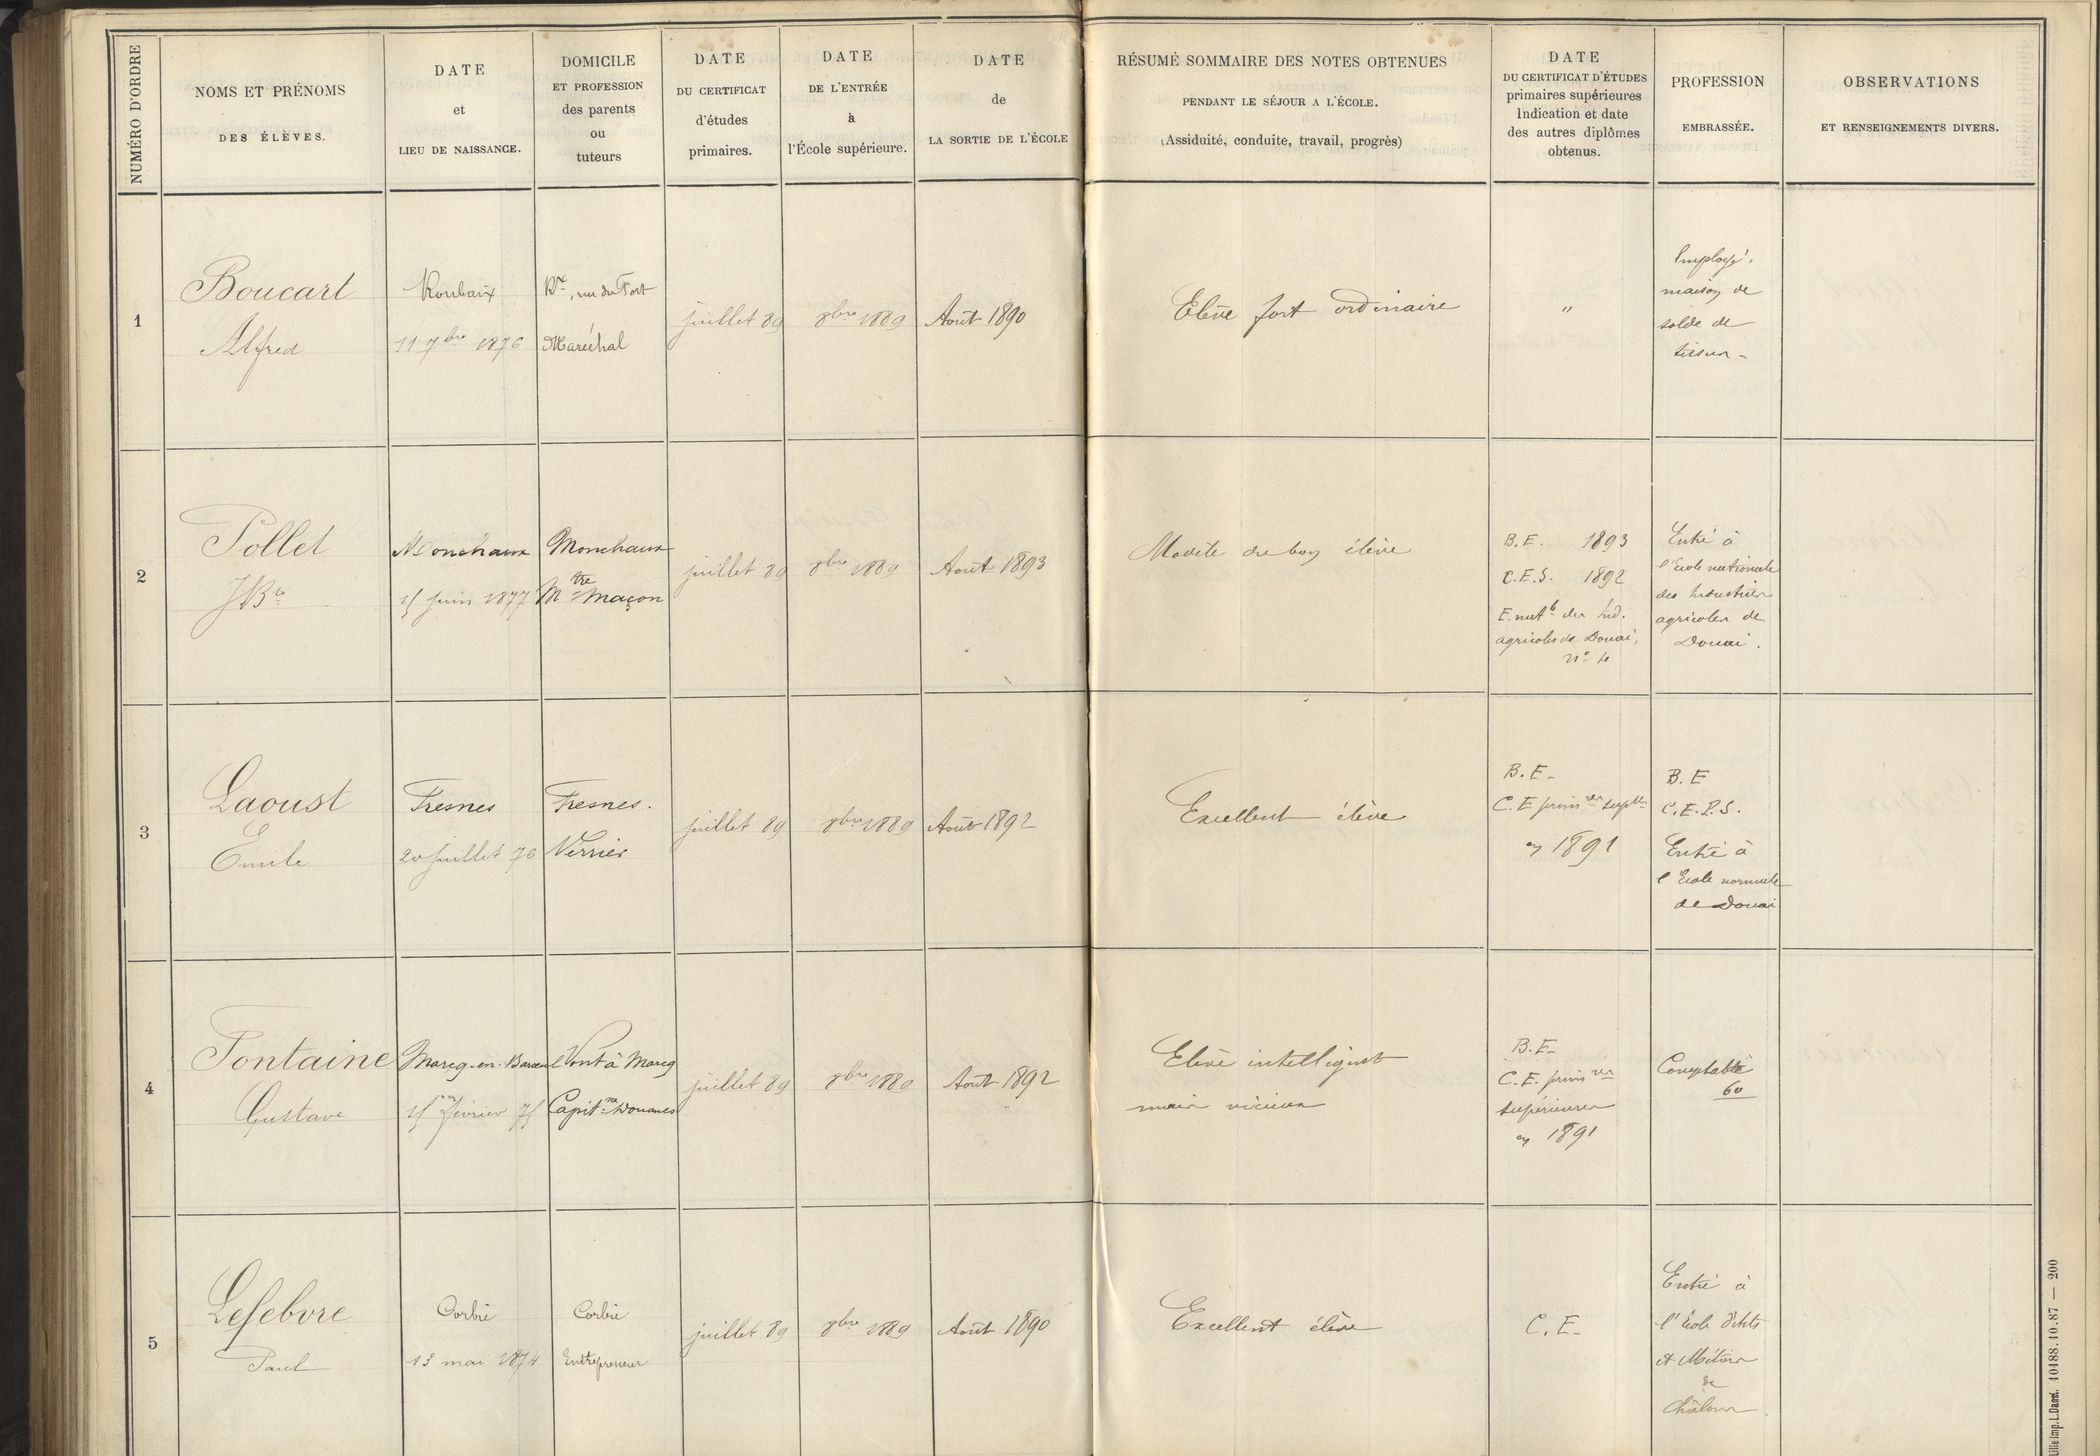 NUMÉRO D'ORDRE
NOMS ET PRÉNOMS
DES ÉLÈVES.
DATE
et
LIEU DE NAISSANCE.
DOMICILE
ET PROFESSION
des parents
ou
tuteurs
DATE
DU CERTIFICAT
d'études
primaires.
DATE
DE L'ENTRÉE
à
l'École supérieure.
DATE
de
LA SORTIE DE L'ÉCOLE
RÉSUMÉ SOMMAIRE DES NOTES OBTENUES
PENDANT LE SÉJOUR A L'ÉCOLE.
(Assiduité, conduite, travail, progrès)
DATE
DU CERTIFICAT D'ÉTUDES
primaires supérieures
Indication et date
des autres diplômes
obtenus.
PROFESSION
EMBRASSÉE.
OBSERVATIONS
ET RENSEIGNEMENTS DIVERS.
1
Boucart
Alfred
Roubaix
11 7bre 1876
Rx, rue du Fort
Maréchal
juillet 89
8bre 1889
Août 1890
Elève fort ordinaire
"
Employé.
maison de
solde de
tissus -
2
Pollet
JBte
Monchaux
15 juin 1877
Monchaux
Mtre Maçon
juillet 89
8bre 1889
Août 1893
Modèle du bon élève
B.E. 1893
C.E.S. 1892
E. natle des Ind.
agricoles de Douai,
n° 4
Entré à
l'Ecole nationale
des Industries
agricoles de
Douai.
3
Laoust
Emile
Fresnes
20 juillet 76
Fresnes.
Verrier
juillet 89
8bre 1889
Août 1892
Excellent élève
B.E-
C.E primres suples
en 1891
B.E
C.E.P.S.
Entré à
l'Ecole normale
de Douai
4
Fontaine
Gustave
Marcq-en-Barœul
15 février 75
Pont à Marcq
Capitne Douanes
juillet 89
8bre 1889
Août 1892
Elève intelligent
mais vicieux
B.E-
C.E. primres
supérieures
en 1891
Comptable
60
5
Lefebvre
Paul
Corbie
13 mai 1874
Corbie
Entrepreneur
juillet 89
8bre 1889
Août 1890
Excellent élève
C.E-
Entré à
l'Ecole d'Arts
et Métiers
de
Châlons.
Lille Imp. L. Danel. 10188.10.87 — 200